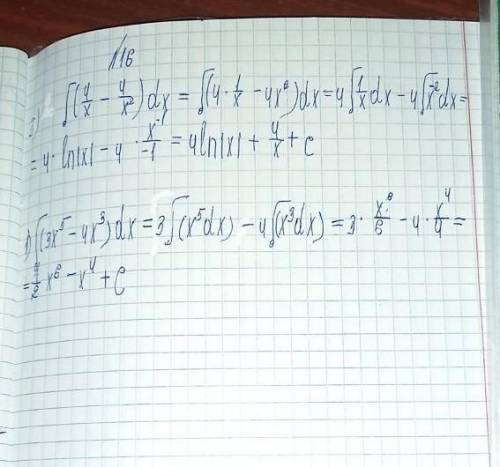 116
∫(4/x - 4/x²)dx = ∫(4·1/x - 4x²)dx = 4∫1/x dx - 4∫x⁻²dx =
= 4·ln|x| - 4·x⁻¹/-1 = 4ln|x| + 4/x + C
∫(3x⁵ - 4x³)dx = 3∫(x⁵dx) - 4∫(x³dx) = 3·x⁶/6 - 4·x⁴/4 =
= 1/2 x⁶ - x⁴ + C